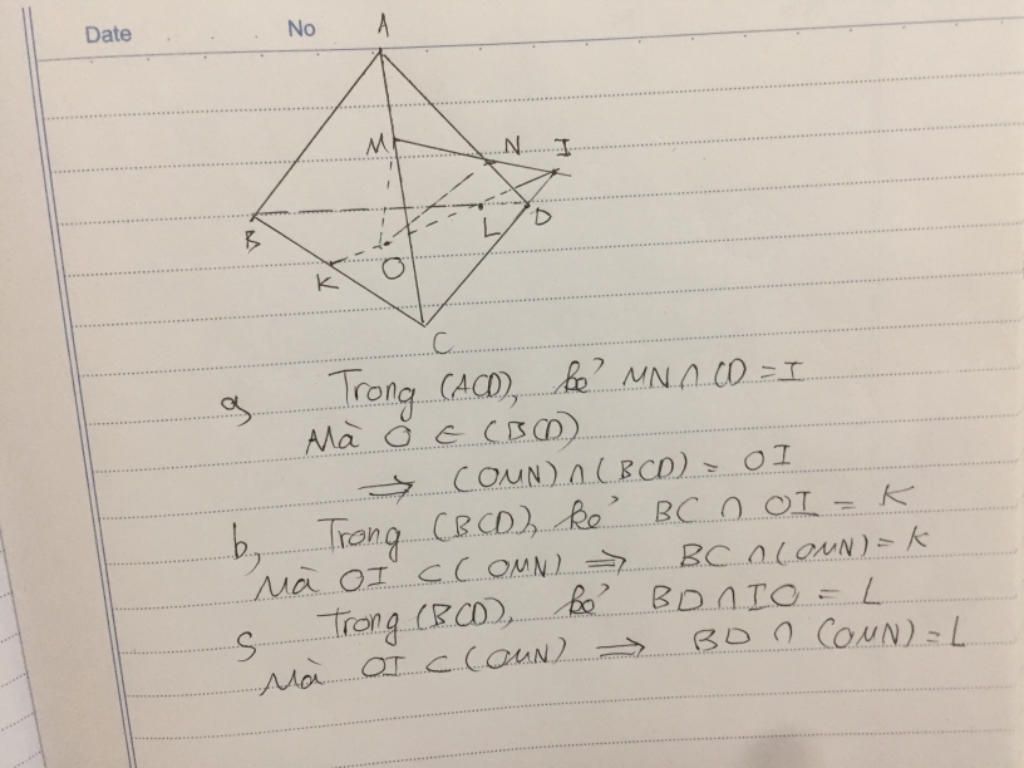 Date No
A
M N I
B L D
K O
C
a, Trong (ACD), kẻ MN ∩ CD = I
Mà O ∈ (BCD)
⇒ (OMN) ∩ (BCD) = OI
b, Trong (BCD), kẻ BC ∩ OI = K
Mà OI ⊂ (OMN) ⇒ BC ∩ (OMN) = K
c, Trong (BCD), kẻ BD ∩ IO = L
Mà OI ⊂ (OMN) ⇒ BD ∩ (OMN) = L